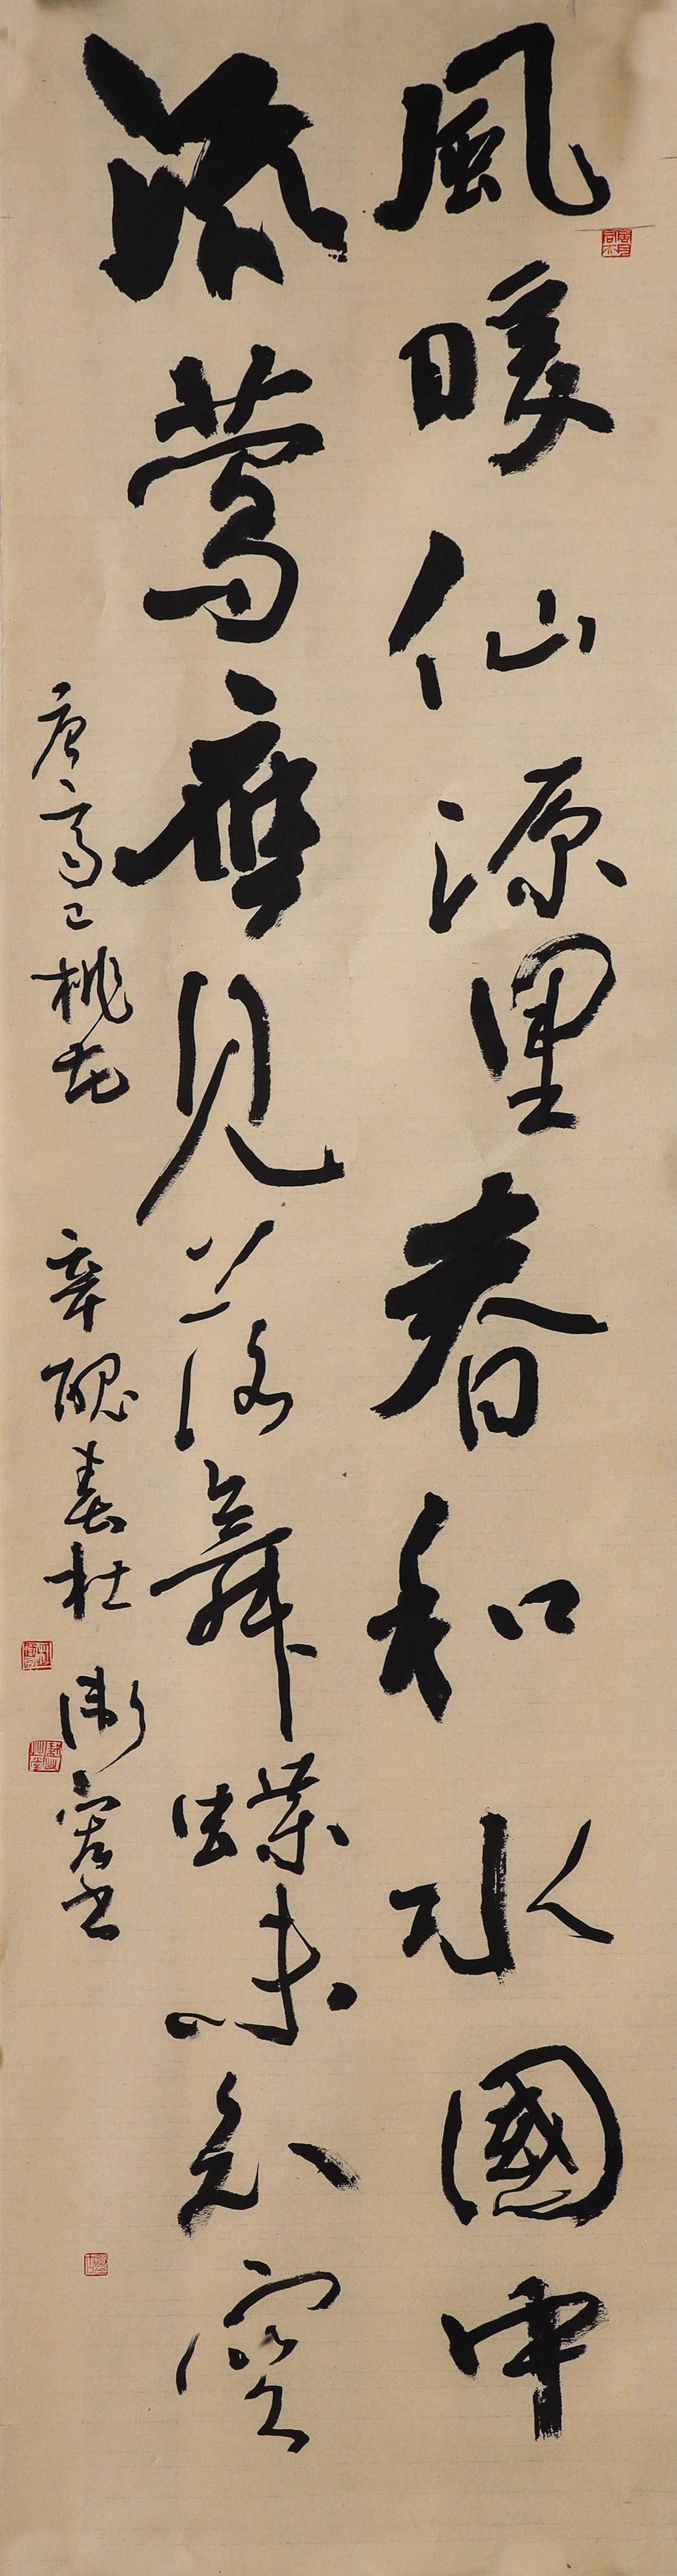 風暖仙源里春和水國中
流莺應見落舞蝶未知空
唐高正桃花 辛醜春杜衡容書